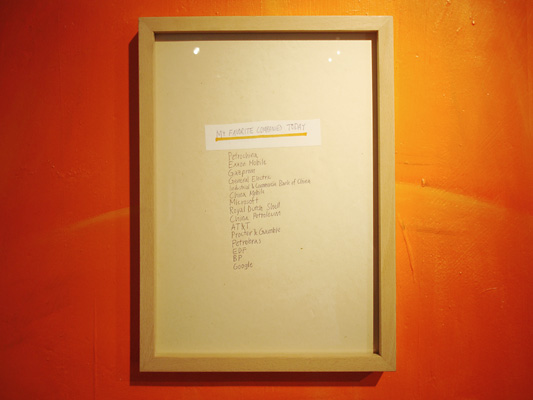 MY FAVORITE COMPANIES TODAY
Petrochina
Exxon Mobile
Gazprom
General Electric
Industrial & Commercial Bank of China
China Mobile
Microsoft
Royal Dutch Shell
China Petroleum
AT&T
Procter & Gambles
Petrobras
EDF
BP
Google